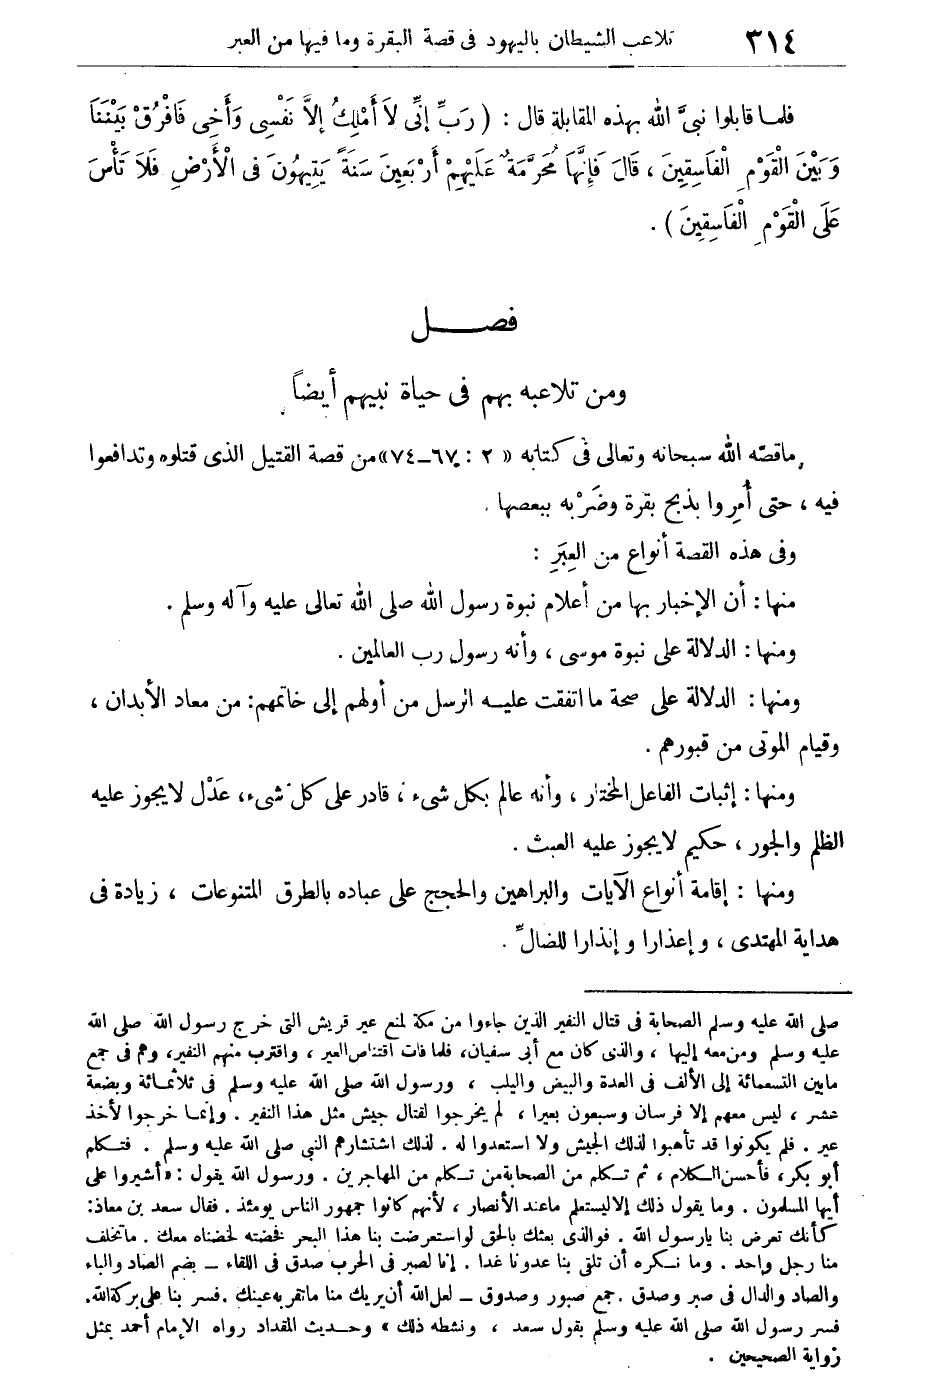 ٣١٤ تلاعب الشيطان باليهود فى قصة البقرة وما فيها من العبر
فلما قابلوا نبىَّ الله بهذه المقابلة قال : ( رَبِّ إِنِّى لاَ أَمْلِكُ إلاَّ نَفْسِى وَأَخِى فَافْرُقْ بَيْنَنَا
وَبَيْنَ الْقَوْمِ الْفَاسِقِينَ ، قَالَ فَإِنَّهَا مُحَرَّمَةٌ عَلَيْهِمْ أَرْبَعِينَ سَنَةً يَتِيهُونَ فى الْأَرْضِ فَلاَ تَأْسَ
عَلَى الْقَوْمِ الْفَاسِقِينَ ) .
فصـــل
ومن تلاعبه بهم فى حياة نبيهم أيضاً
ماقصّه الله سبحانه وتعالى فى كتابه « ٢ : ٦٧ــ٧٤»من قصة القتيل الذى قتلوه وتدافعوا
فيه ، حتى أُمِروا بذبح بقرة وضَرْبه ببعضها .
وفى هذه القصة أنواع من العِبَرِ :
منها : أن الإخبار بها من أعلام نبوة رسول الله صلى الله تعالى عليه وآله وسلم .
ومنها : الدلالة على نبوة موسى ، وأنه رسول رب العالمين .
ومنها : الدلالة على صحة ما اتفقت عليـه الرسل من أولهم إلى خاتمهم: من معاد الأبدان ،
وقيام الموتى من قبورهم .
ومنها : إثبات الفاعل المختار ، وأنه عالم بكل شىء ، قادر على كل شىء، عَدْل لايجوز عليه
الظلم والجور ، حكيم لايجوز عليه العبث .
ومنها : إقامة أنواع الآيات والبراهين والحجج على عباده بالطرق المتنوعات ، زيادة فى
هداية المهتدى ، وإعذارا وإنذارا للضالِّ .
صلى الله عليه وسلم الصحابة فى قتال النفير الذين جاءوا من مكة لمنع عير قريش التى خرج رسول الله صلى الله
عليه وسلم ومن معه إليها ، والذى كان مع أبى سفيان، فلما فات اقتناص العير ، واقترب منهم النفير، وهم فى جمع
مابين التسعمائة إلى الألف فى العدة والبيض واليلب ، ورسول الله صلى الله عليه وسلم فى ثلاثمائة وبضعة
عشر ، ليس معهم إلا فرسان وسبعون بعيرا ، لم يخرجوا لقتال جيش مثل هذا النفير . وإنمـا خرجوا لأخذ
عير . فلم يكونوا قد تأهبوا لذلك الجيش ولا استعدوا له . لذلك استشارهم النبى صلى الله عليه وسلم . فتـكلم
أبو بكر، فأحسن الـكلام ، ثم تـكلم من الصحابة من تـكلم من المهاجرين . ورسول الله يقول : «أشيروا على
أيها المسلمون . وما يقول ذلك إلا ليستعلم ماعند الأنصار ، لأنهم كانوا جمهور الناس يومئذ . فقال سعد بن معاذ:
كأنك تعرض بنا يارسول الله . فوالذى بعثك بالحق لو استعرضت بنا هذا البحر فخضته لخضناه معك . ماتخلف
منا رجل واحد . وما نـكره أن تلقى بنا عدونا غدا . إنا لصبر فى الحرب صدق فى اللقاء ــ بضم الصاد والباء
والصاد والدال فى صبر وصدق . جمع صبور وصدوق ــ لعل الله أن يريك منا ماتقر به عينك . فسر بنا على بركة الله.
فسر رسول الله صلى الله عليه وسلم بقول سعد ، ونشطه ذلك » وحـديث المقداد رواه الإمام أحمد بمثل
رواية الصحيحين .